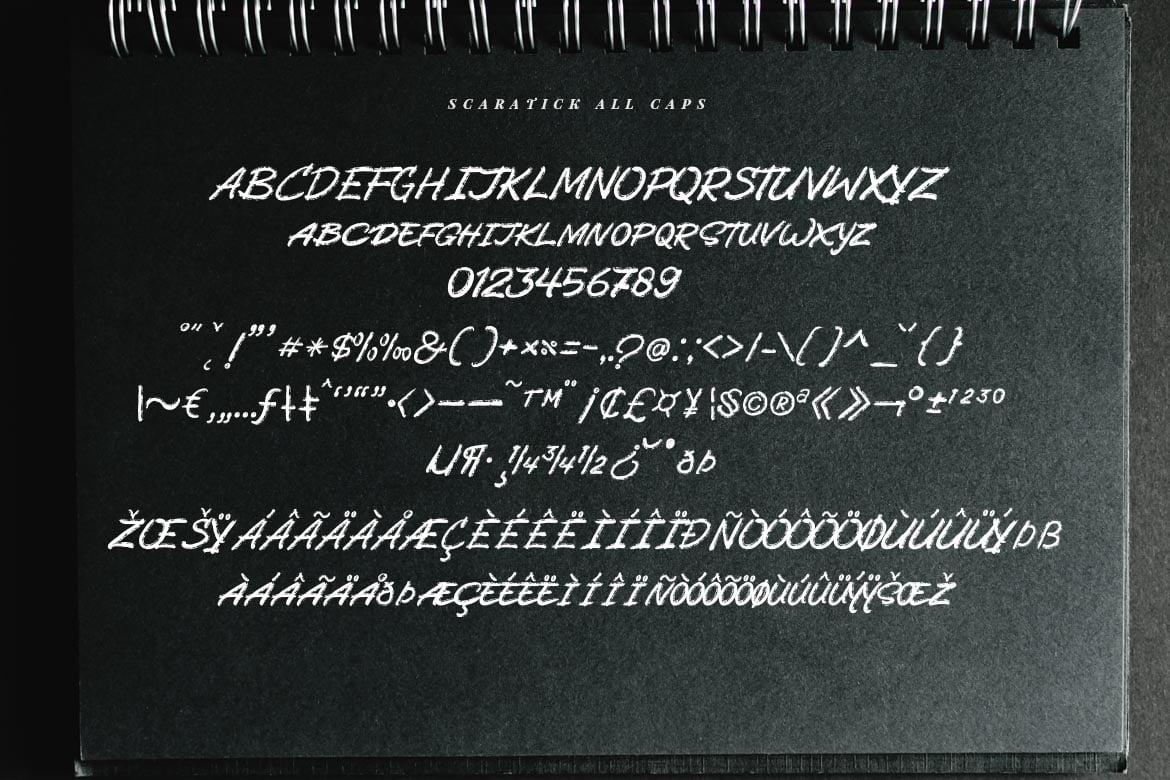 SCARATICK ALL CAPS
ABCDEFGHIJKLMNOPQRSTUVWXYZ
ABCDEFGHIJKLMNOPQRSTUVWXYZ
0123456789
°" ˇ ˛ ! ”’ # * $ % ‰ & ( ) + × ÷ = - , . ? @ : ; ‘ < > / - \ ( ) ^ _ ˘ { }
| ~ € ‚ „ … ƒ † ‡ ˆ ‘ ’ “ ” • ‹ › – — ˜ ™ ¨ ¡ ¢ £ ¤ ¥ ¦ § © ® ª « » ¬ ° ± ¹ ² ³ 0
µ ¶ · ¸ ¼ ¾ ½ ¿ ˘ ˙ ð þ
ŽŒŠŸÁÂÃÄÀÅÆÇÈÉÊËÌÍÎÏÐÑÒÓÔÕÖØÙÚÛÜÝÞß
ÀÁÂÃÄÅðþÆÇÈÉÊËÌÍÎÏÑÒÓÔÕÖØÙÚÛÜÝŸŠŒŽ